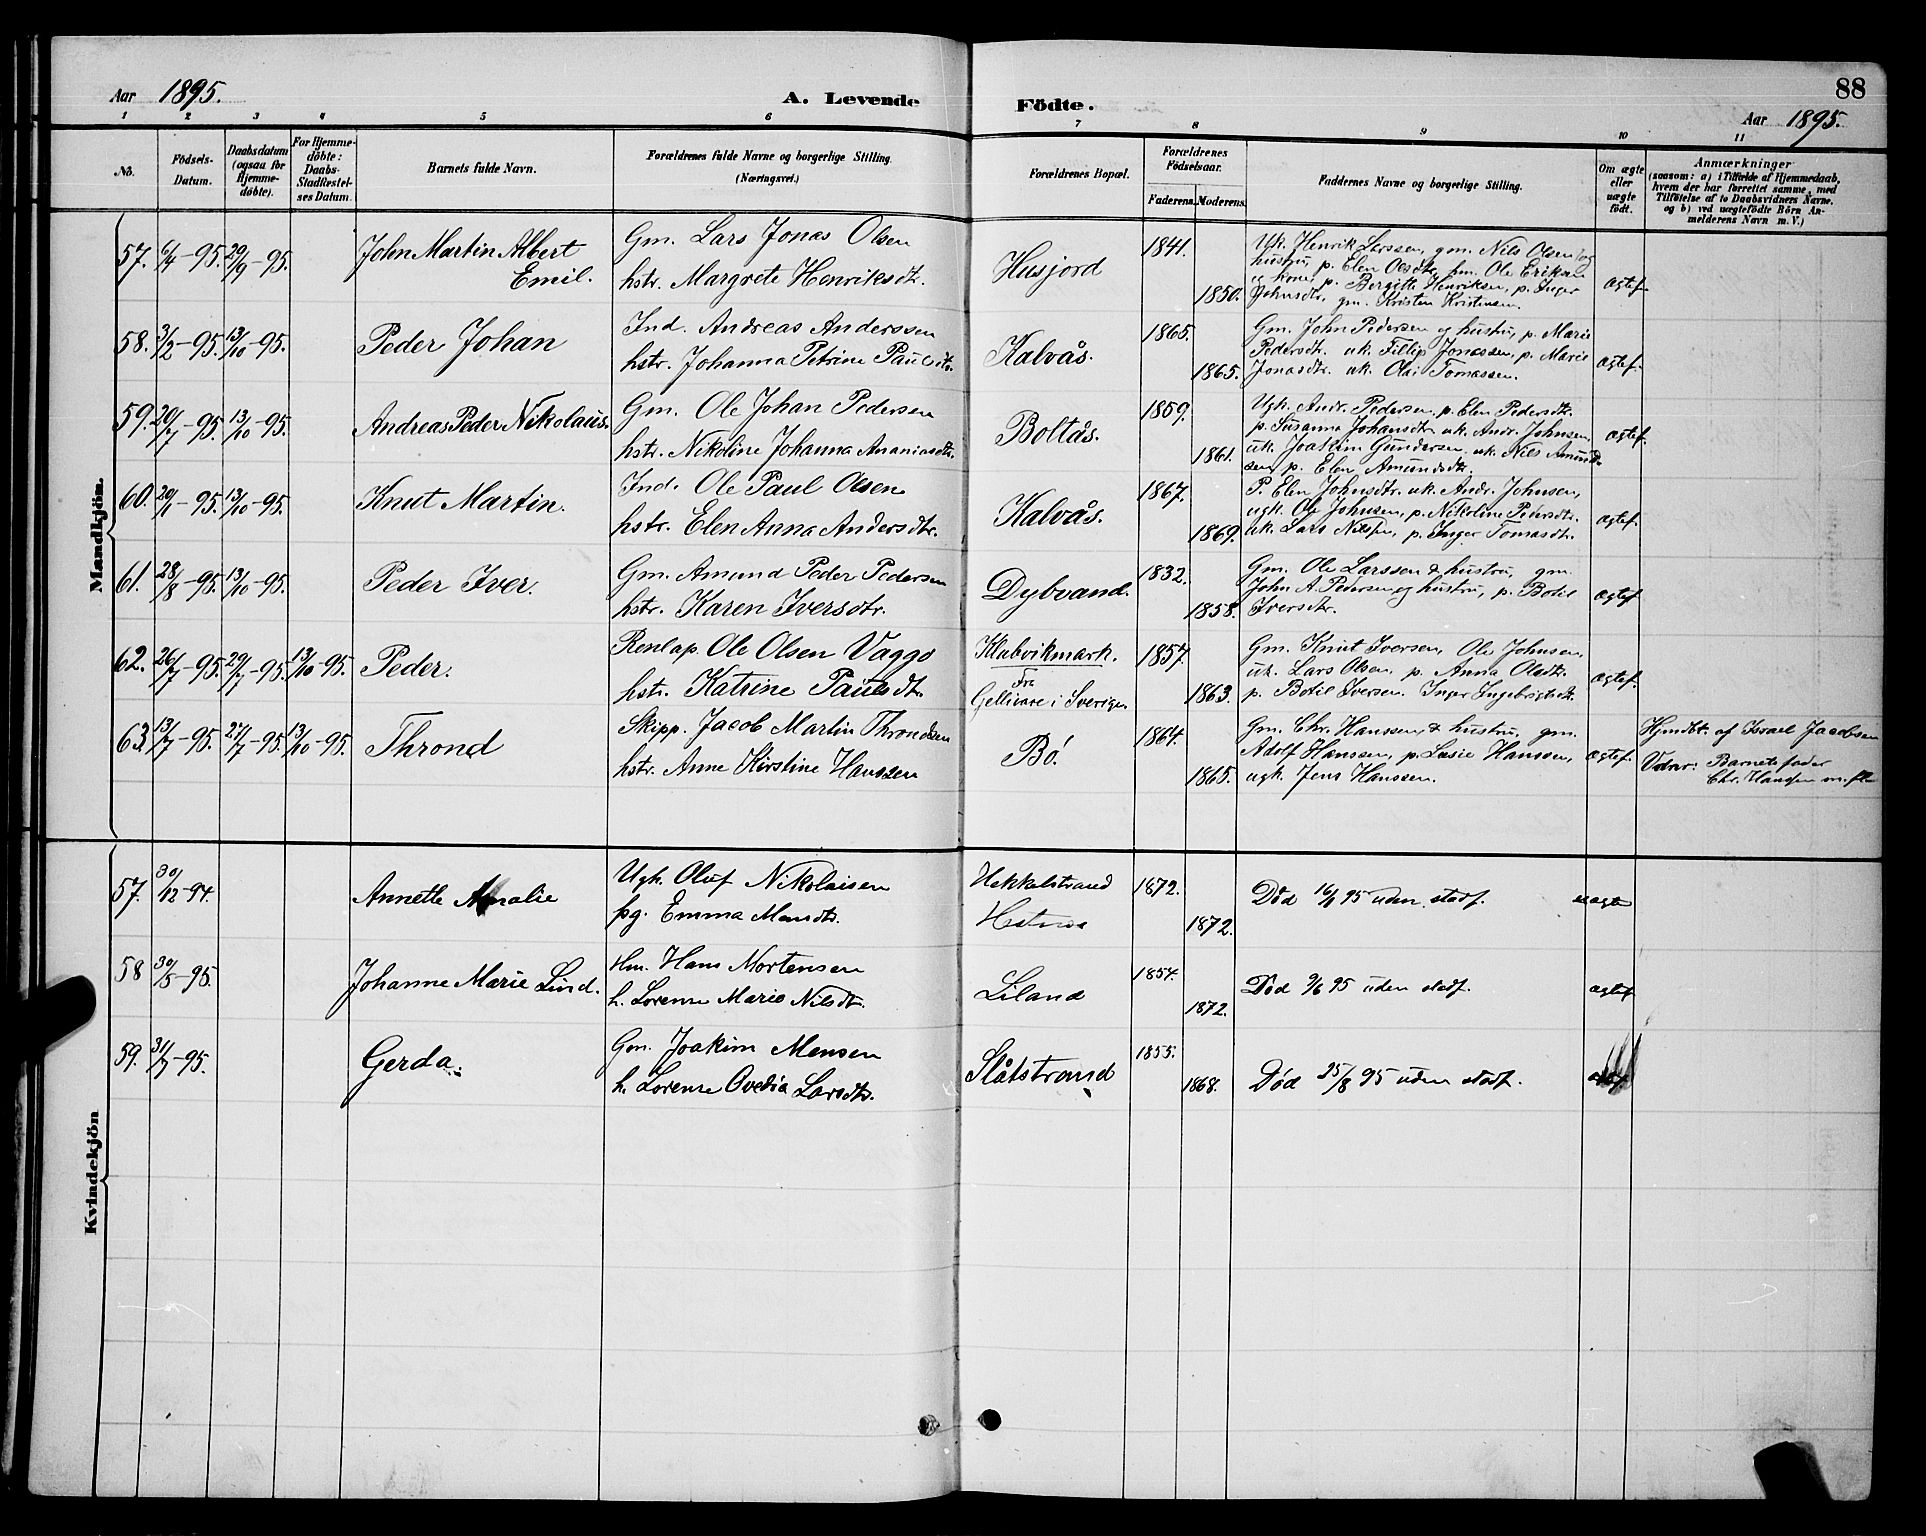 Aar 1895. A. Levende Födte. 88
Aar 1895.
1 2 3 4 5 6 7 8 9 10 11
No.
Födsels-
Datum.
Daabsdatum
(ogsaa for
Hjemme-
döbte).
For Hjemme-
döbte:
Daabs-
Stadfestel-
ses Datum.
Barnets fulde Navn.
Forældrenes fulde Navne og borgerlige Stilling.
(Næringsvei.)
Forældrenes Bopæl.
Forældrenes
Födselsaar.
Faderens. Moderens.
Faddernes Navne og borgerlige Stilling.
Om ægte
eller
uægte
født.
Anmærkninger
(saasom: a) i Tilfælde af Hjemmedaab,
hvem der har forrettet samme, med
Tilföielse af to Daabsvidners Navne.
og b) ved uægtefödte Börn An-
melderens Navn m. V.)
Mandkjön.
57. 6/4-95. 29/9-95. John Martin Albert
Emil.
Gm. Lars Jonas Olsen
hstr. Margrete Henriksdtr.
Husjord
1841.
1850.
Uk. Henrik Larssen, gm. Nils Olsen og
hustru, p. Elen Olsdtr. hm. Ole Eriksen
p. Bergitte Henriksen, p. Inger
Johnsdtr, gm. Kristen Kristensen.
ægtef.
58. 3/2-95. 13/10-95. Peder Johan
Ind. Andreas Anderssen
hstr. Johanna Petrine Paulsdtr.
Kalvås.
1865.
1865.
Gm. John Pedersen og hustru, p. Marie
Pedersdtr. uk. Fillip Jonassen, p. Marie
Jonasdtr. uk. Olai Tomassen.
ægtef.
59. 20/7-95. 13/10-95. Andreas Peder Nikolaus.
Gm. Ole Johan Pedersen
hstr. Nikoline Johanna Ananiasdtr.
Boltås.
1859.
1861.
Ugk. Andr. Pedersen, p. Elen Pedersdtr.
p. Susanna Johansdtr. uk. Andr. Johnsen,
uk. Joakim Gundersen, uk. Nils Amund-
sen p. Elen Amundsdtr.
ægtef.
60. 29/1-95. 13/10-95. Knut Martin.
Ind. Ole Paul Olsen
hstr. Elen Anna Andersdtr.
Kalvås.
1867.
1869.
P. Elen Johnsdtr. uk. Andr. Johnsen,
ugk. Ole Johnsen, p. Nikoline Pedersdtr.
uk. Lars Nilssen, p. Inger Tomasdtr.
ægtef.
61. 28/8-95. 13/10-95. Peder Iver.
Gm. Amund Peder Pedersen
hstr. Karen Iversdtr.
Dybvand.
1832.
1858.
Gm. Ole Larssen & hustru, gm.
John A. Pedersen og hustru, p. Botil
Iversdtr.
ægtef
62. 26/7-95. 29/7-95. 13/10-95. Peder.
Renlap. Ole Olsen Vaggo
hstr. Katrine Paulsdt.
Klubvikmark.
Fra
Gellivare i Sverige.
1857.
1863.
Gm. Knut Iversen, Ole Johnsen,
uk. Lars Olsen, p. Anna Olsdtr.
p. Botil Iversen. Inger Ingebrigtsdtr.
ægtef.
63. 13/7-95. 27/7-95. 13/10-95. Thrond
Skipp. Jacob Martin Throndsen
hstr. Anne Kirstine Hanssen
Bö.
1864.
1865.
Gm. Chr. Hanssen & hustru, gm.
Adolf Hanssen, p. Lusie Hanssen,
ugk. Jens Hanssen.
ægtef.
Hjmdbt. af Israel Jacobsen
Vidner: Barnets fader
Chr. Hanssen m. fl.
Kvindekjön
57. 30/12-94. Annette Amalie
Ugk. Oluf Nikolaisen
pg. Emma Mandtr.
Hekkelstrand
1872.
1872.
Död 16/1 95 uden stadf.
uægte
58 30/5-95. Johanne Marie Lind.
Hm. Hans Mortensen
h. Lorense Marie Nilsdtr.
Liland
1854.
1872.
Död 9/6 95 uden stadf.
ægtef
59. 31/7-95. Gerda.
Gm. Joakim Mensen
h. Lorense Ovedia Larsdtr.
Slåtstrand
1855.
1868.
Död 25/8 95 uden stadf.